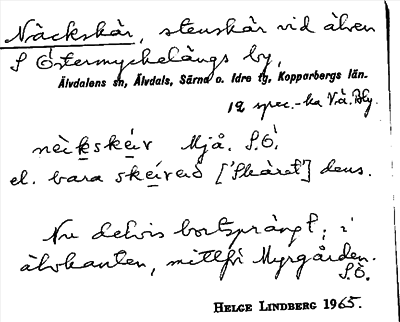 Näckskär, stenskär vid älven
S Östermyckelängs by,
Älvdalens sn, Älvdals, Särna o. Idre tg, Kopparbergs län.
12 spec.-ka Vä. Bly.
nèkskéɩr Mjå. S.Ö.
el. bara skéɩreð ['Skäret'] dens.
Nu delvis bortsprängt; i
älvkanten, mittför Myrgården.
S.Ö.
HELGE LINDBERG 1965.